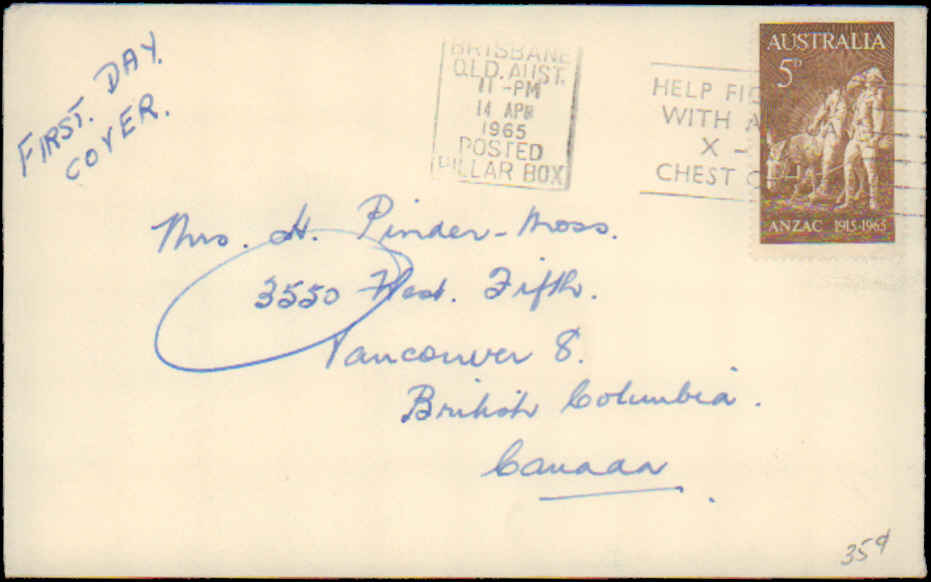 FIRST. DAY.
COVER.
BRISBANE
QLD. AUST.
11 -PM
14 APR
1965
POSTED
PILLAR BOX
HELP
WITH A
X -
CHEST
AUSTRALIA
5D
ANZAC 1915-1965
Mrs. H. Pinder-Moss.
3550 West. Fifth.
Vancouver 8.
British Columbia.
Canada.
35¢